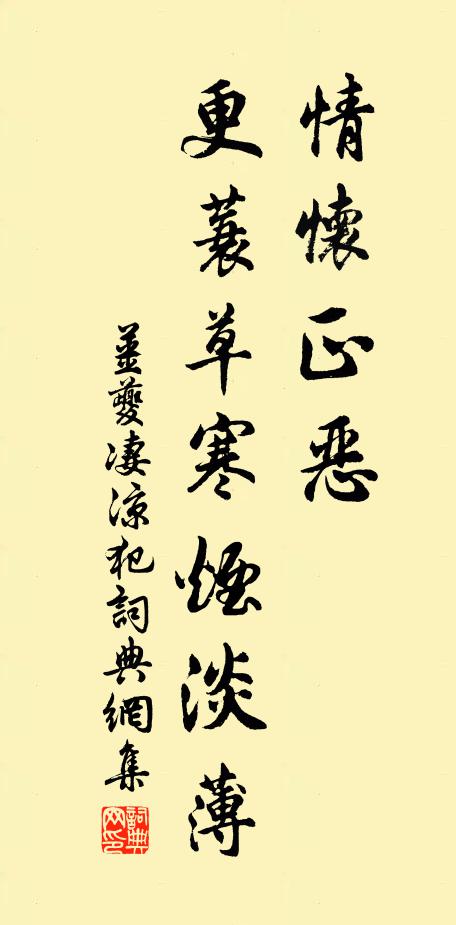 情懷正惡
更蓑草寒煙淡薄
姜夔凄涼犯詞典網集
詞典網印